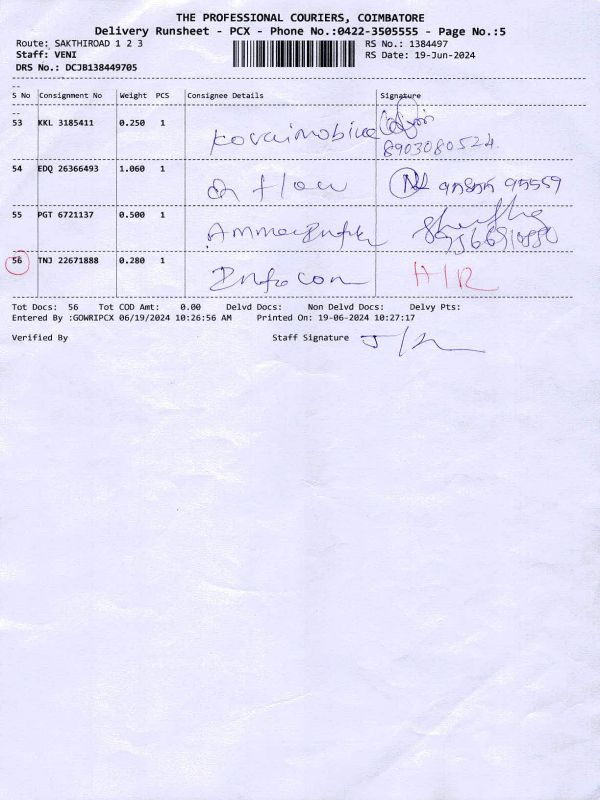 THE PROFESSIONAL COURIERS, COIMBATORE
Delivery Runsheet - PCX - Phone No.:0422-3505555 - Page No.:5
Route: SAKTHIROAD 1 2 3 RS No.: 1384497
Staff: VENI RS Date: 19-Jun-2024
DRS No.: DCJB138449705
S No Consignment No Weight PCS Consignee Details Signature
53 KKL 3185411 0.250 1 kovaimobile
8903080524.
54 EDQ 26366493 1.060 1 flow
55 PGT 6721137 0.500 1
56 TNJ 22671888 0.280 1 Infocon H/R
Tot Docs: 56 Tot COD Amt: 0.00 Delvd Docs: Non Delvd Docs: Delvy Pts:
Entered By :GOWRIPCX 06/19/2024 10:26:56 AM Printed On: 19-06-2024 10:27:17
Verified By Staff Signature